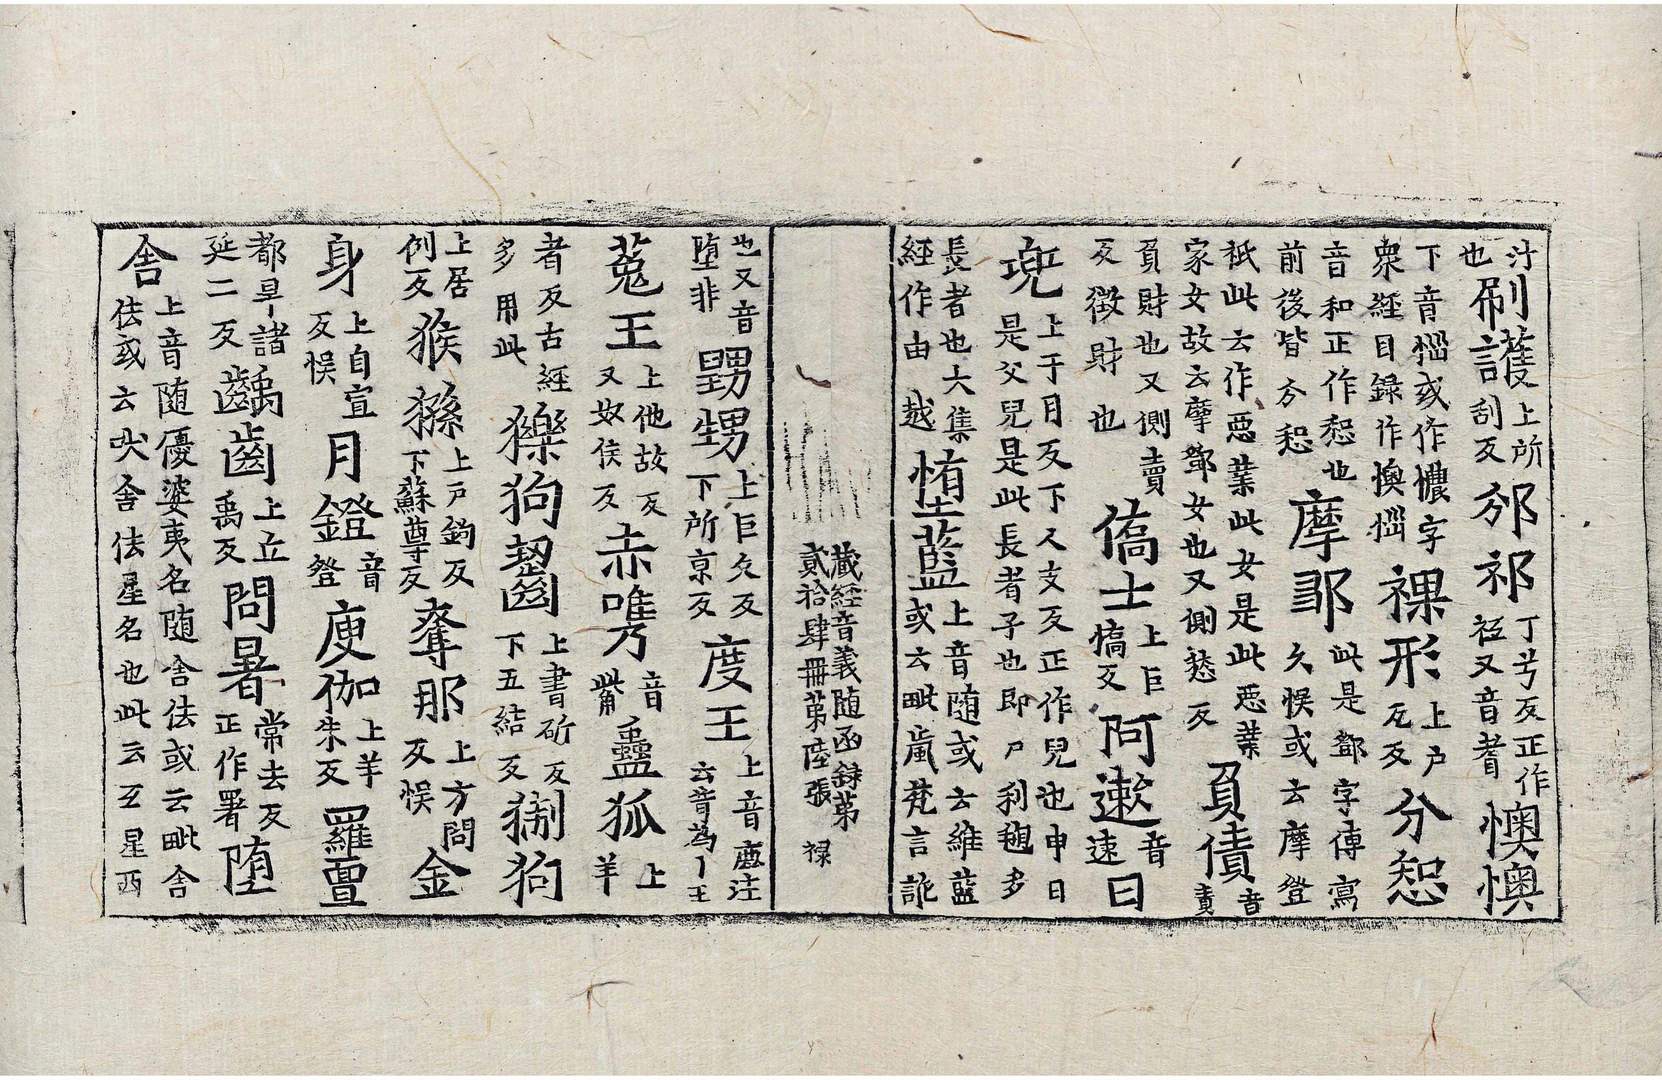 汁也刷護上所刮反祁祁丁兮反正作祗又音耆懊懊
下音惱或作憹字衆經目錄作懊惱裸形上戶瓦反分恕
音和正作恕也前後皆分恕摩鄀此是鄧字傳寫久悮或云摩登
祇此云作惡業此女是此惡業家女故云摩鄧女也又側愁反負債音責
負財也又側賣反徵財也僑士上巨憍反阿遬音速曰
兠上于月反下人支反正作兒也申日是父兒是此長者子也即尸利毱多
長者也大集經作由越墮藍上音随或云維藍或云毗嵐梵言訛
藏經音義随函録第貳拾肆冊第陸張 禄
也又音堕非甥甥上巨久反下所京反度王上音鹿注云昔為鹿王
菟王上他故反又奴侯反赤嘴音觜蠱狐上羊
者反古經多用此㹱狗齧齒上書斫反下五結反猘狗
上居例反猴猻上戶鈎反下蘇尊反奪那上方問反悮金
身上自宣反悮月鐙音燈庾伽上羊朱反羅亶
都早諸延二反齲齒上立禹反問暑常去反正作署堕
舍上音随優婆夷名随舍佉或云毗舍佉或云吠舍佉星名也此云互星西